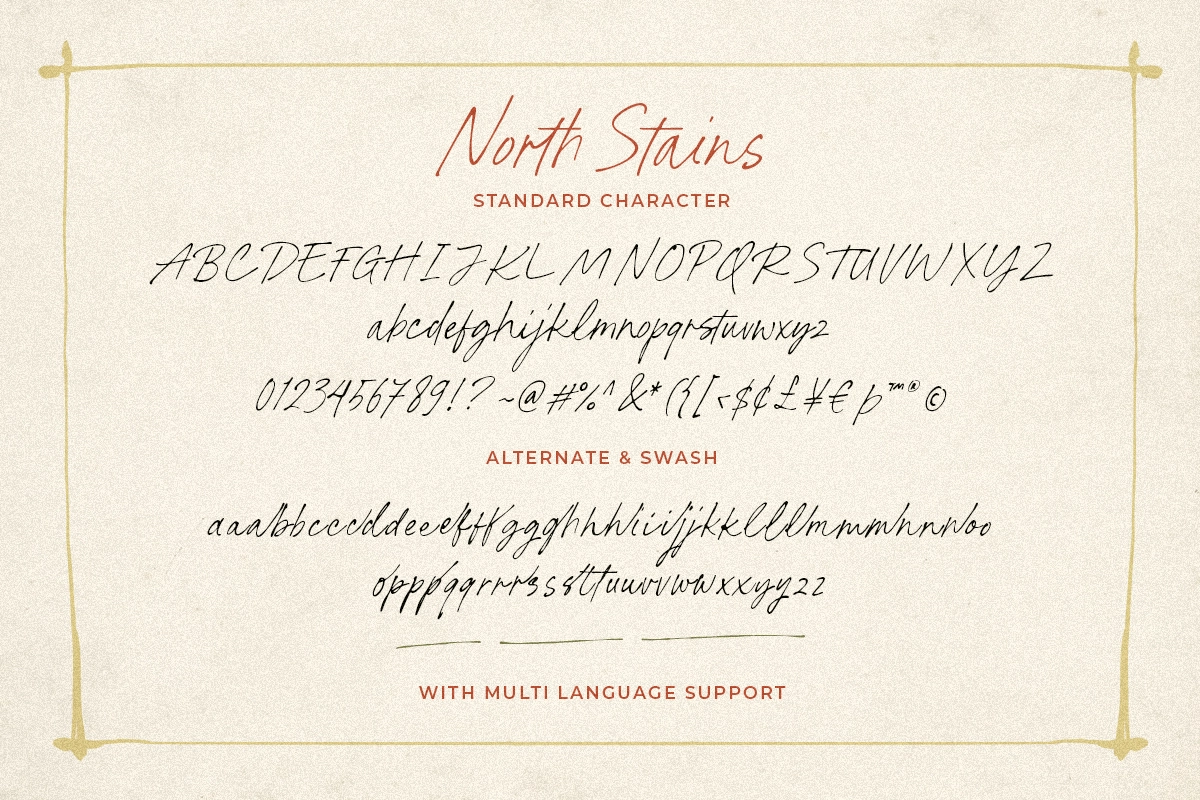 North Stains
STANDARD CHARACTER
ABCDEFGHIJKLMNOPQRSTUVWXYZ
abcdefghijklmnopqrstuvwxyz
0123456789!? ~@#%^&*({[<$¢£¥€þ™®©
ALTERNATE & SWASH
aaabbcccdddeeefffggghhhiiijjjkklllmmmnnnoo
opppqqrrrsssttuuvvwwxxyyzz
WITH MULTI LANGUAGE SUPPORT